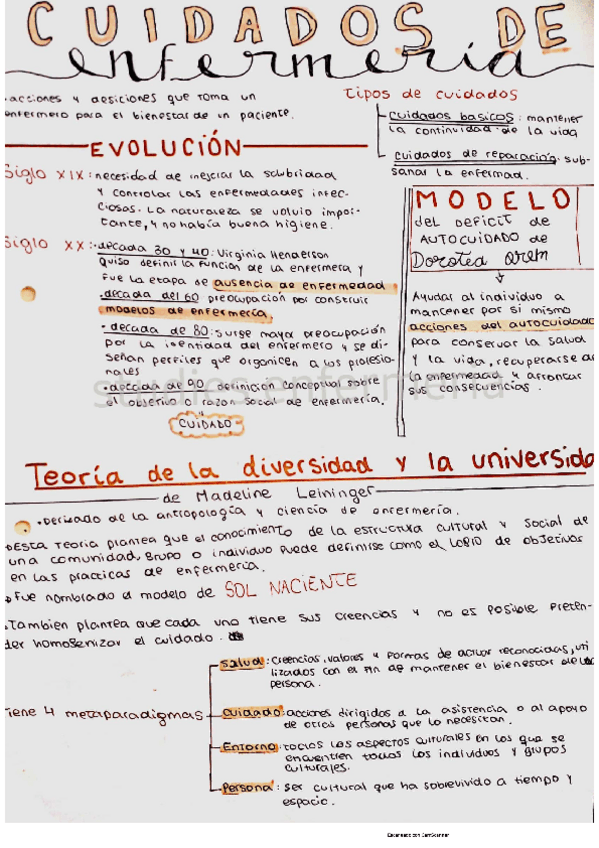 CUIDADOS DE
enfermería
acciones y desiciones que toma un
enfermero para el bienestar de un paciente.
Tipos de cuidados
cuidados basicos: mantener
la continuidad de la vida
cuidados de reparación: sub-
sanar la enfermedad.
EVOLUCIÓN
Siglo XIX: necesidad de mejorar la salubridad
y controlar las enfermedades infec-
ciosas. La naturaleza se volvio impor-
tante, y no había buena higiene.
Siglo XX: década 30 y 40: Virginia Henderson
quiso definir la función de la enfermera y
fue la etapa de ausencia de enfermedad.
decada del 60 preocupación por construir
modelos de enfermería.
decada de 80: surge mayor preocupación
por la identidad del enfermero y se di-
señan perfiles que organicen a los profesio-
nales
decada de 90 definición conceptual sobre
el objetivo o razon social de enfermería.
CUIDADO
MODELO
del deficit de
AUTOCUIDADO de
Dorotea Orem
Ayudar al individuo a
mantener por si mismo
acciones del autocuidado
para conservar la salud
y la vida, recuperarse de
la enfermedad y afrontar
sus consecuencias.
studies enfermeria
Teoría de la diversidad y la universida
de Madeline Leininger
Derivado de la antropología y ciencia de enfermería.
Esta teoria plantea que el conocimiento de la estructura cultural y social de
una comunidad, grupo o individuo puede definirse como el LOGRO de objetivos
en las practicas de enfermería.
Fue nombrado el modelo de SOL NACIENTE
Tambien plantea que cada uno tiene sus creencias y no es posible preten-
der homogenizar el cuidado.
Tiene 4 metaparadigmas
Salud: Creencias, valores y formas de actuar reconocidas, uti
lizados con el fin de mantener el bienestar de la
persona.
cuidado: acciones dirigidos a la asistencia o al apoyo
de otras personas que lo necesitan.
Entorno: todos los aspectos culturales en los que se
encuentren todos los individuos y grupos
culturales.
Persona: ser cultural que ha sobrevivido a tiempo y
espacio.
Escaneado con CamScanner